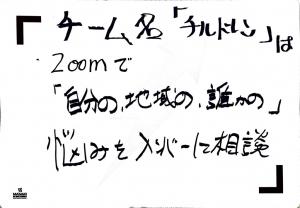 チーム名「チルドレン」は
Zoomで
「自分の、地域の、誰かの」
悩みをメンバーに相談